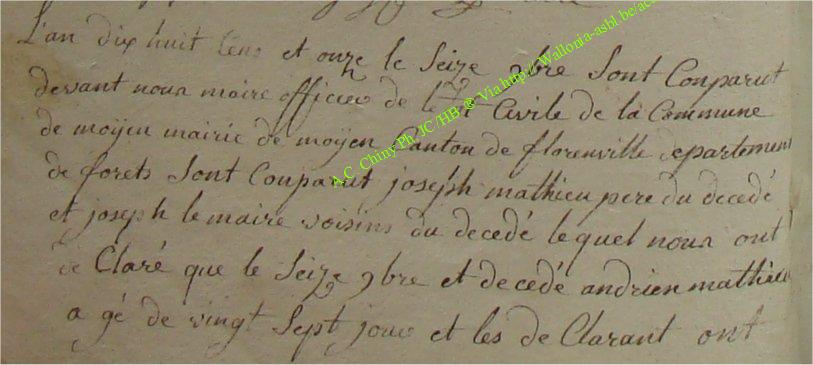 L'an dix huit Cens et onze le Seize 9bre Sont Conparut
devant nous maire officier de letat Civile de la Commune
de moÿen mairie de moÿen Canton de florenville departement
de forets Sont Conparut joseph mathieu pere du decedé
et joseph le maire voisins du decedé lequel nous ont
de Claré que le Seize 9bre et decedé andrien mathieu
a gé de vingt Sept jour et les de Clarant ont
A.C. Chiny Ph. JC /HB @ Via http://Wallonia-asbl.be/ac